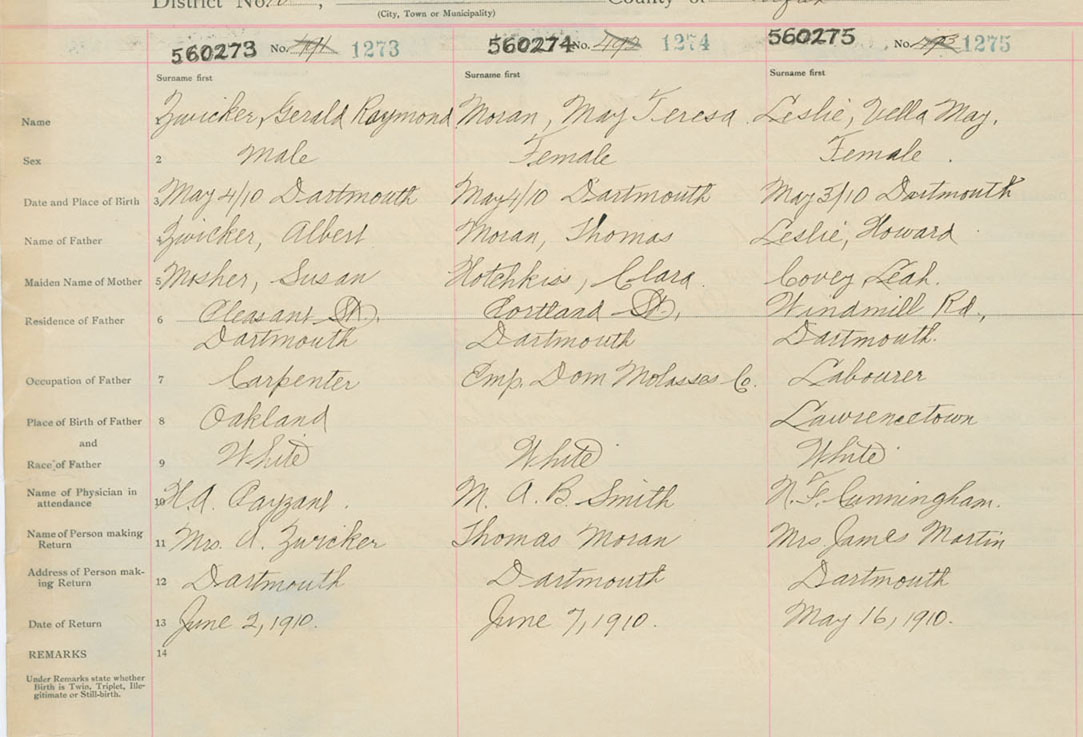 District No. County of
(City, Town or Municipality)
560273 No. 491 1273 560274 No. 492 1274 560275 No. 493 1275
Surname first Surname first Surname first
Name 1 Zwicker, Gerald Raymond Moran, May Teresa Leslie, Vella May.
Sex 2 Male Female Female
Date and Place of Birth 3 May 4/10 Dartmouth May 4/10 Dartmouth May 3/10 Dartmouth
Name of Father 4 Zwicker, Albert Moran, Thomas Leslie, Howard
Maiden Name of Mother 5 Mosher, Susan Hotchkiss, Clara Covey, Leah.
Residence of Father 6 Pleasant St. Portland St. Windmill Rd.,
Dartmouth Dartmouth Dartmouth.
Occupation of Father 7 Carpenter Emp. Dom Molasses Co. Labourer
Place of Birth of Father 8 Oakland Lawrencetown
and
Race of Father 9 White White White
Name of Physician in
attendance 10 H.A. Payzant. M. A. B. Smith N. F. Cunningham.
Name of Person making
Return 11 Mrs. A. Zwicker Thomas Moran Mrs. James Martin
Address of Person mak-
ing Return 12 Dartmouth Dartmouth Dartmouth
Date of Return 13 June 2, 1910. June 7, 1910. May 16, 1910.
REMARKS 14
Under Remarks state whether
Birth is Twin, Triplet, Ille-
gitimate or Still-birth.